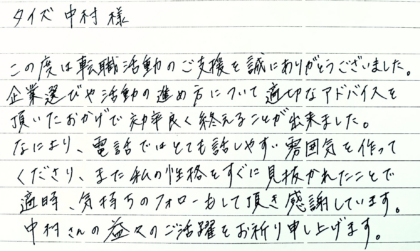 タイズ 中村 様
この度は転職活動のご支援を誠にありがとうございました。
企業選びや活動の進め方について適切なアドバイスを
頂いたおかげで効率良く終えることが出来ました。
なにより、電話ではとても話しやすい雰囲気を作って
くださり、また私の性格をすぐに見抜かれたことで
適時、気持ちのフォローもして頂き感謝しています。
中村さんの益々のご活躍をお祈り申し上げます。